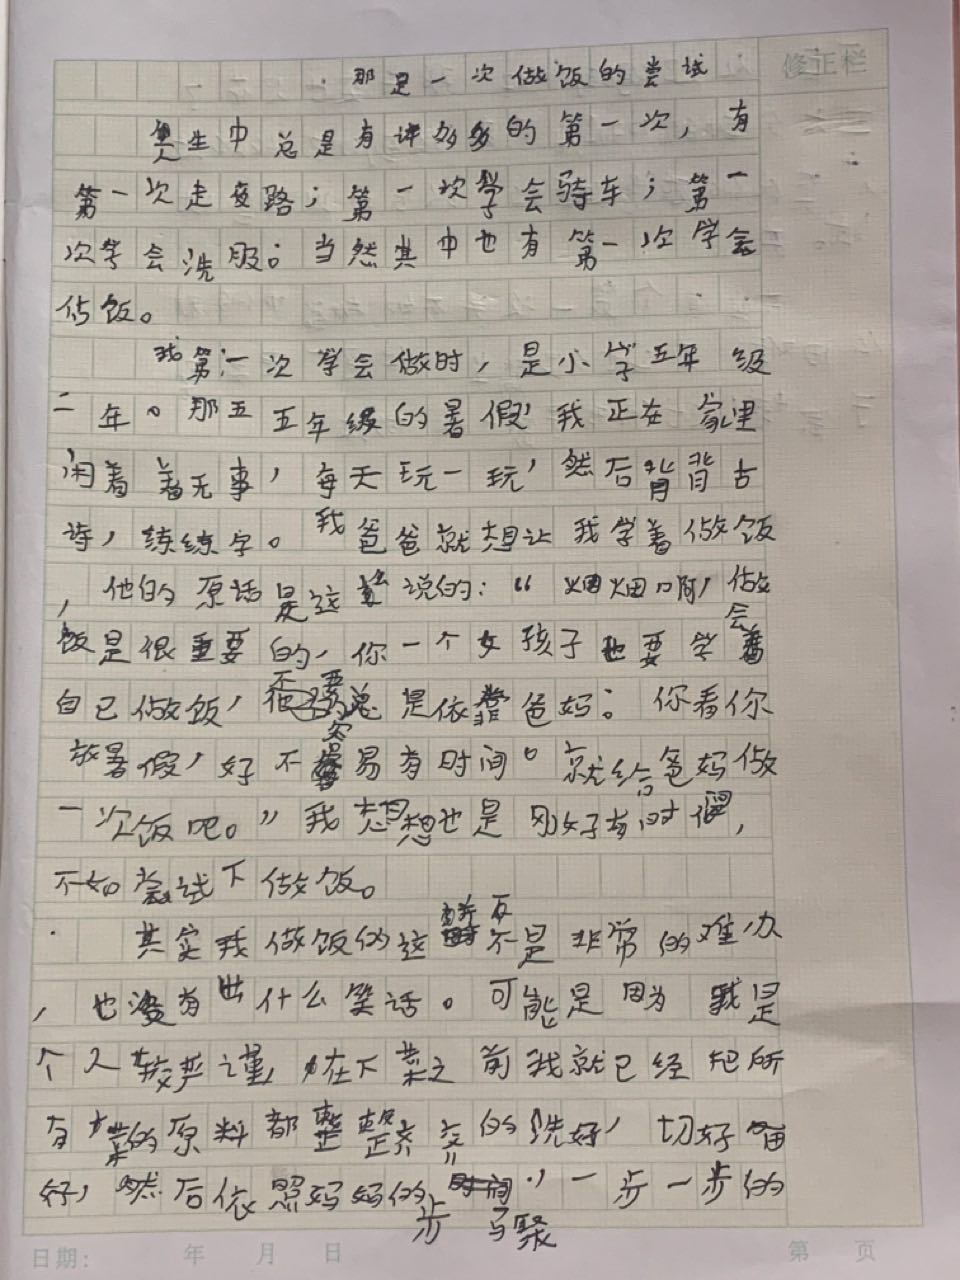 修正栏
那是一次做饭的尝试
人生中总是有许多多的第一次，有
第一次走夜路；第一次学会骑车；第一
次学会洗服。当然其中也有第一次学会
做饭。
我第一次学会做时，是小学五年级
二年。那五五年级的暑假，我正在家里
闲着着无事，每天玩一玩，然后背背古
诗，练练字。我爸爸就想让我学着做饭
，他的原话是这么说的：“烟烟啊，做
饭是很重要的，你一个女孩子也要学会
自己做饭，不要总是依靠爸妈。你看你
放暑假，好不容易有时间。就给爸妈做
一次饭吧。”我想想也是刚好有时间，
不如尝试下做饭。
其实我做饭的这 不是非常的难办
，也没有出什么笑话。可能是因为我是
个人较严谨，在下菜之前我就已经把所
有菜的原料都整整齐齐的洗好，切好
好，然后依照妈妈的步骤，一步一步的
日期： 年 月 日 第 页